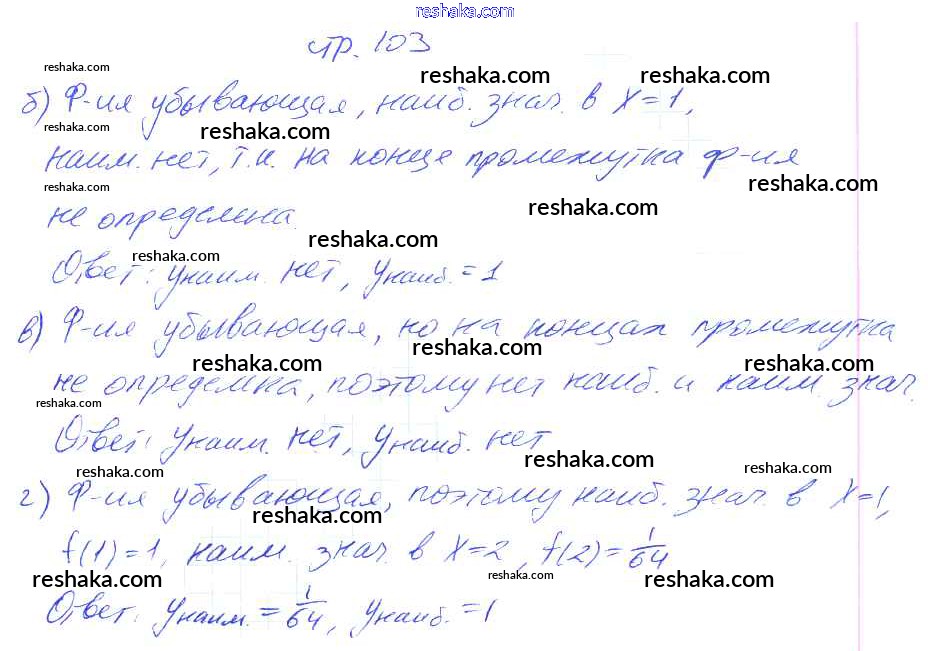 reshaka.com
стр. 103
reshaka.com
reshaka.com reshaka.com
б) Ф-ия убывающая, наиб. знач. в x=1,
reshaka.com reshaka.com
наим. нет, т.к. на конце промежутка ф-ия
reshaka.com reshaka.com
не определена.
reshaka.com
reshaka.com
reshaka.com
Ответ: yнаим. нет, yнаиб. = 1
в) Ф-ия убывающая, но на концах промежутка
reshaka.com
reshaka.com reshaka.com
не определена, поэтому нет наиб. и наим. знач.
reshaka.com
Ответ: yнаим. нет, yнаиб. нет
reshaka.com
reshaka.com reshaka.com
г) Ф-ия убывающая, поэтому наиб. знач. в x=1,
reshaka.com
f(1)=1, наим. знач. в x=2, f(2)=1/64
reshaka.com reshaka.com reshaka.com
Ответ: yнаим. = 1/64, yнаиб. = 1